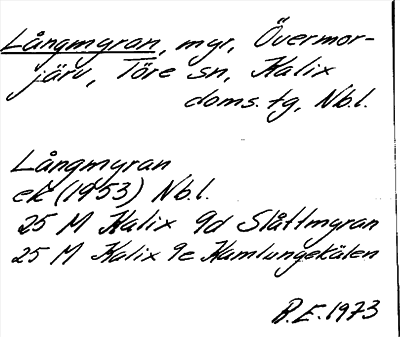 Långmyran, myr, Övermor-
järv, Töre sn, Kalix
doms. tg, Nb.l.
Långmyran
ek (1953) Nb.l.
25 M Kalix 9d Slåttmyran
25 M Kalix 9e Kamlungekölen
B.E. 1973